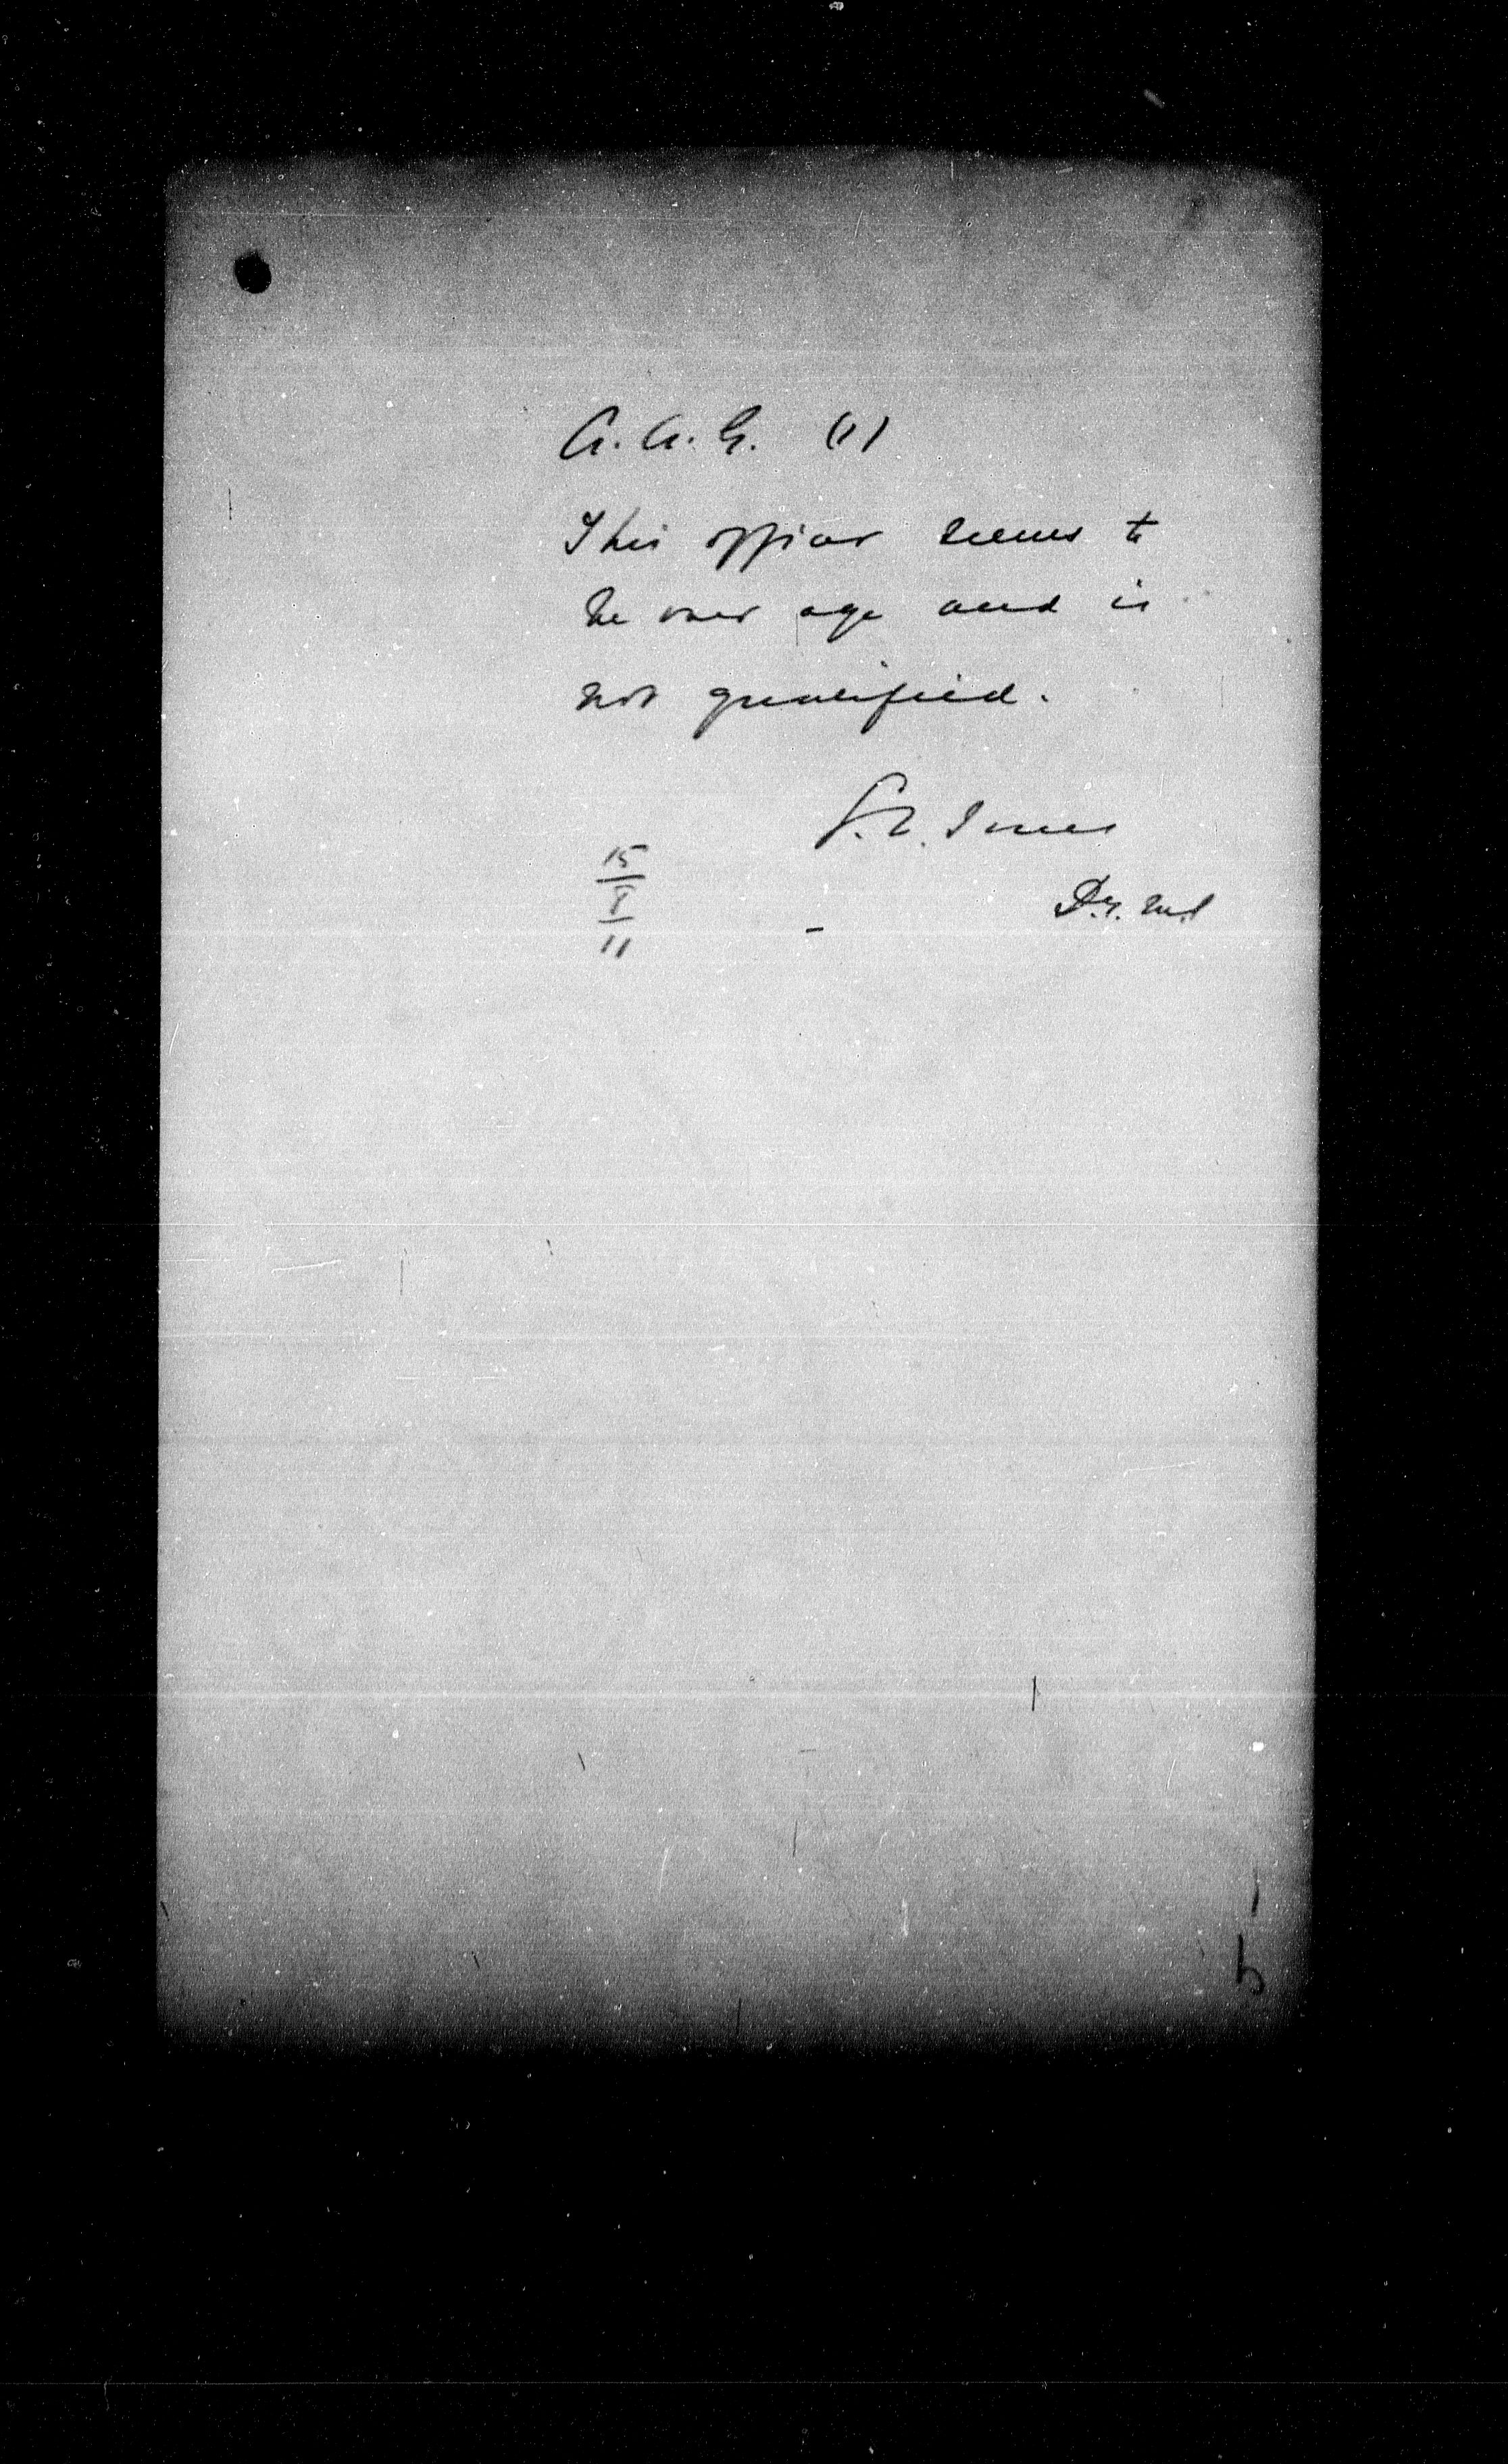 A.A.G. (1)
This officer seems to
be over age and is
not qualified.
G.L. Jones
15
8
11
D.G.M.S